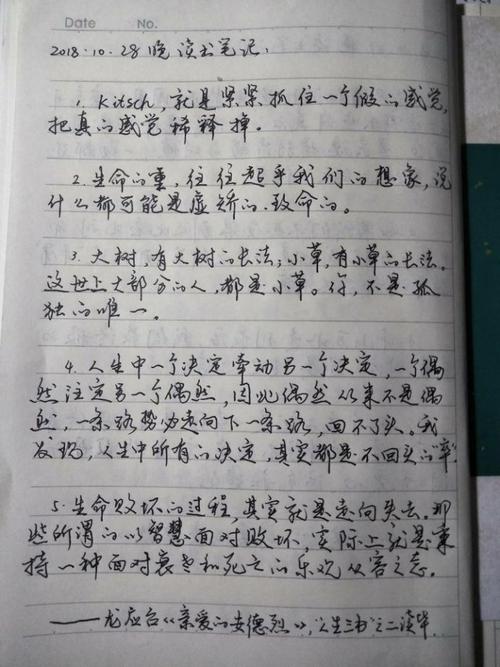 Date No.
2018.10.28晚读书笔记:
1. Kitsch, 就是紧紧抓住一个假的感觉,
把真的感觉稀释掉。
2. 生命的重, 往往超乎我们的想象, 说
什么都可能是虚矫的、致命的。
3. 大树, 有大树的长法; 小草, 有小草的长法。
这世上大部分的人, 都是小草。你, 不是孤
独的唯一。
4. 人生中一个决定牵动另一个决定, 一个偶
然注定另一个偶然, 因此偶然从来不是偶
然, 一条路势必走向下一条路, 回不了头。我
发现, 人生中所有的决定, 其实都是不回头的“率”
5. 生命败坏的过程, 其实就是走向失去, 那
些所谓的以智慧面对败坏, 实际上就是秉
持一种面对衰老和死亡的乐观从容之态。
——龙应台《亲爱的安德烈》, “人生三书”之二读毕